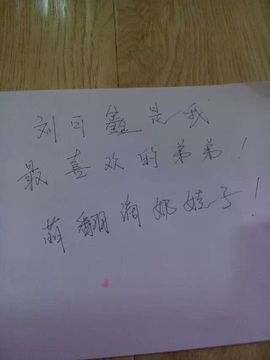 刘可鑫是我
最喜欢的弟弟！
萌翻湘妮婊子！